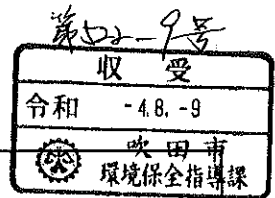 第522-9号
収受
令和 -4.8.-9
吹田市
環境保全指導課